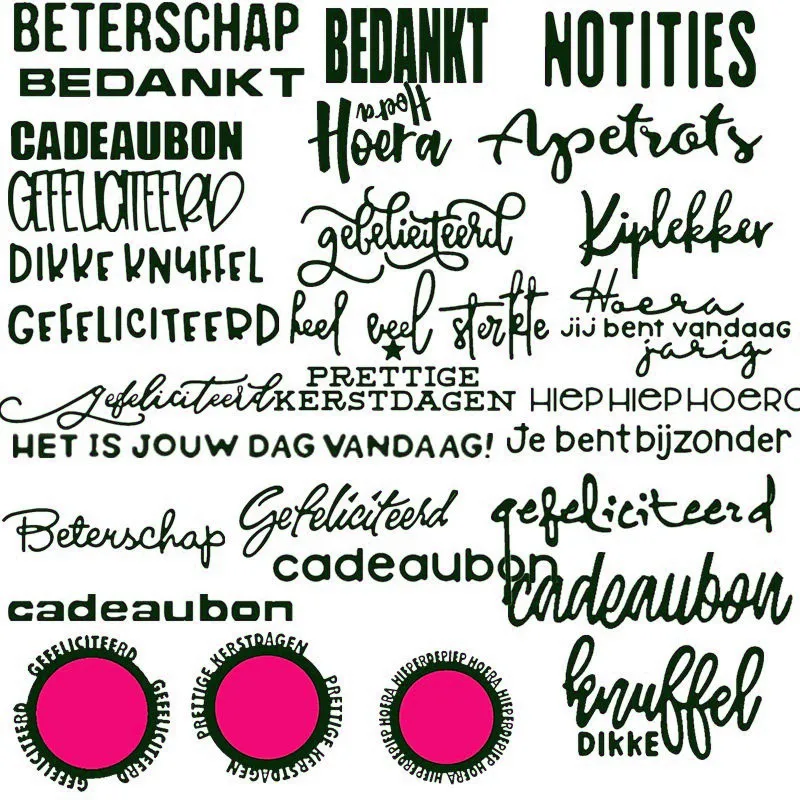 BETERSCHAP
BEDANKT
BEDANKT
NOTITIES
CADEAUBON
Hoera
Hoera
Apetrots
GEFELICITEERD
gefeliciteerd
Kiplekker
DIKKE KNUFFEL
GEFELICITEERD
heel veel sterkte
Hoera
jij bent vandaag
jarig
gefeliciteerd
PRETTIGE
KERSTDAGEN
HIEPHIEPHOERA
HET IS JOUW DAG VANDAAG!
Je bent bijzonder
Beterschap
Gefeliciteerd
gefeliciteerd
cadeaubon
cadeaubon
cadeaubon
GEFELICITEERD GEFELICITEERD GEFELICITEERD GEFELICITEERD
PRETTIGE KERSTDAGEN PRETTIGE KERSTDAGEN PRETTIGE KERSTDAGEN
HIEPERDEPIEP HOERA HIEPERDEPIEP HOERA HIEPERDEPIEP HOERA HIEPERDEPIEP HOERA
knuffel
DIKKE